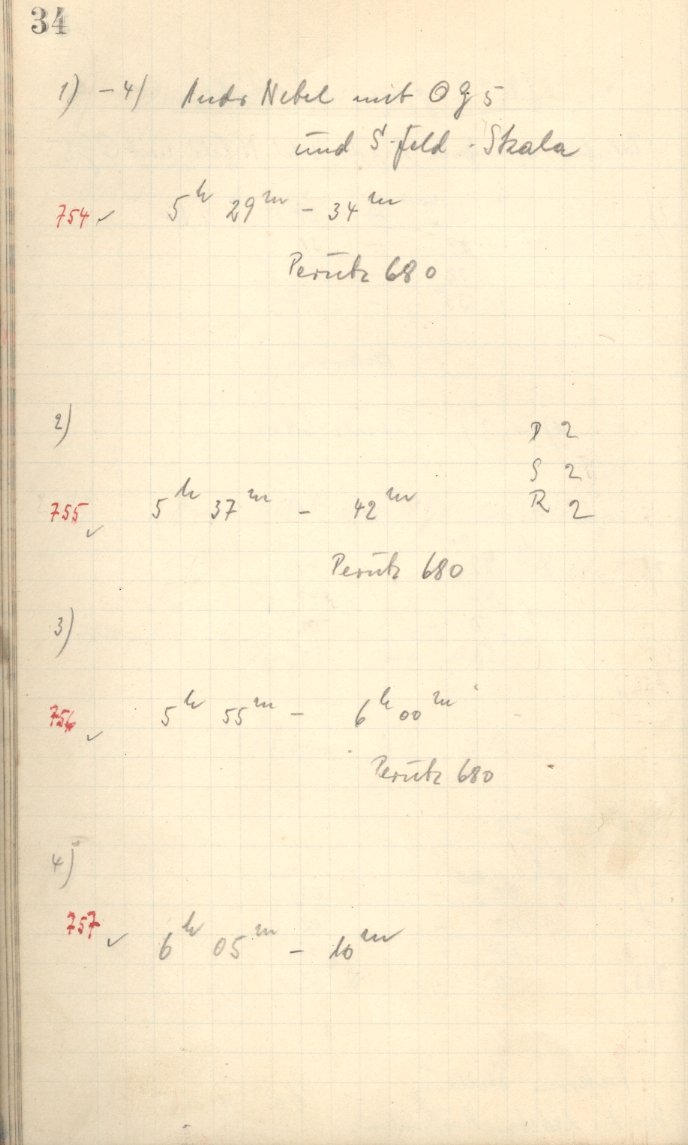 34
1) – 4) Andr Nebel mit OG 5
und S-Feld-Skala
754 ✓ 5ʰ 29ᵐ – 34ᵐ
Perutz 680
2)
D 2
S 2
R 2
755 ✓ 5ʰ 37ᵐ – 42ᵐ
Perutz 680
3)
756 ✓ 5ʰ 55ᵐ – 6ʰ 00ᵐ
Perutz 680
4)
757 ✓ 6ʰ 05ᵐ – 10ᵐ